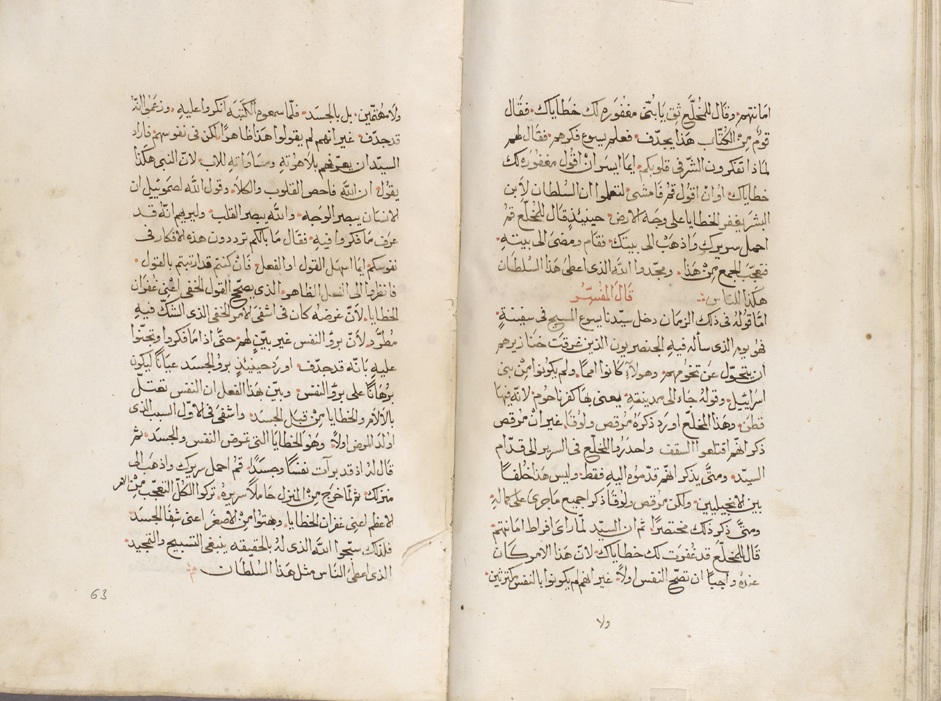 امانتهم وقال للمخلع ثق يا بُنَّي مغفوره لك خطاياك فقال
قومٌ من الكُتّاب هذا يجدّف فعلم يسوع فكرهم فقال لهم
لماذا تفكرون الشر في قلوبكم ايما ايسر ان اقول مغفوره لك
خطاياك او ان اقول قم فامشي لتعلموا ان السلطان لابن
البشر يغفر الخطايا على وجه الارض حينيذٍ قال للمخلع قم
احمل سريرك واذهب الى بيتك فقام ومضى الى بيته
فتعجّب الجمع من هذا ومجّدوا الله الذى اعطى هذا السلطان
هكذا للناس قال المفسّر
امّا قوله فى ذلك الزمان دخل سيّدنا يسوع المسيح فى سفينةٍ
فهو يوم الذى ساله فيه الجنصريون الذين غرقت خنازيرهم
ان يتحوّل عن تخومهم وهولاء كانوا امماً ولم يكونوا من بنى
اسراييل وقوله جاء الى مدينته يعنى بها كفرناحوم لانه فيها
قطن وهذا المخلع اورد ذكره مرقص ولوقا غير ان مرقص
ذكر انهم اقتلعوا السقف واحدروا المخلع فى السرير الى قدّام
السيّد ومتّى يذكر انهم قدّموه اليه فقط وليس هذا خلفاً
بين الانجيليين ولكن مرقص ولوقا ذكرا جميع ما جرى على كماله
ومتّى ذكر ذلك مختصراً ثم ان السيّد لما راى افراط امانتهم
قال للمخلع قد غفرت لك خطاياك لان هذا الامر كان
عنده واجباً ان تصحّ النفس اولاً غير انهم لم يكونوا بالنفس مكترثين
ولا
ولا مهتمّين بل بالجسد فلمّا سمعوه الكتبه انكروا عليه وزعموا انّه
قد جدّف غير انهم لم يقولوا هذا ظاهراً لكن فى نفوسهم فاراد
السيّد ان يعرّفهم بلاهوته ومساواته للاب لان النبى هكذا
يقول ان الله فاحص القلوب والكلاء وقول الله لصموئيل ان
الانسان يبصر الوجه والله يبصر القلب وليريهم انّه قد
عرف ما فكروا فيه فقال ما بالكم ترددون هذه الافكار فى
نفوسكم ايما اسهل القول او الفعل فان كنتم قد ارتبتم بالقول
فانظروا الى الفعل الظاهر الذى يصحح القول الخفى اعنى غفران
الخطايا لانّ غرضه كان فى اشفى الامر الخفى الذى الشك فيه
مطّرد لانّ برؤ النفس غير بيّن لهم حتى اذا ما فكروا وتجنّوا
عليه بانّه قد جدّف اورد حينيذٍ برؤ الجسد عياناً ليكون
برهاناً على برؤ النفس وبيّن بهذا الفعل ان النفس تعتل
بالالام والخطايا من قبل الجسد واشفى فى الاول السبب الذى
اولد المرض اولاً وهو الخطايا التى تمرض النفس والجسد ثم
قال له اذ قد برأت نفساً وجسداً قم احمل سريرك واذهب الى
منزلك ثم لمّا خرج من المنزل حاملاً سريره تركوا الكلّ التعجّب من الامر
الاعظم اعنى غفران الخطايا وبهتوا من الاصغر اعنى شفا الجسد
فلذلك سبّحوا الله الذى له بالحقيقه ينبغى التسبيح والتمجيد
الذى اعطى الناس مثل هذا السلطان
63